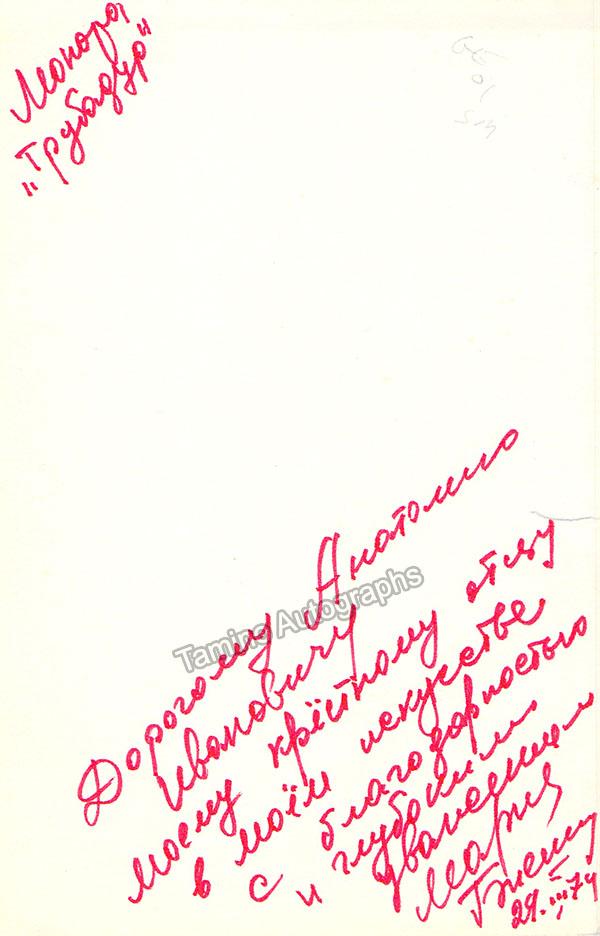 Леонора,
"Трубадур"
Дорогому Анатолию
Ивановичу
моему крёстному отцу
в моём искусстве
с благодарностью
и глубоким
уважением
Мария
Биешу
29.III 74
Tamino Autographs